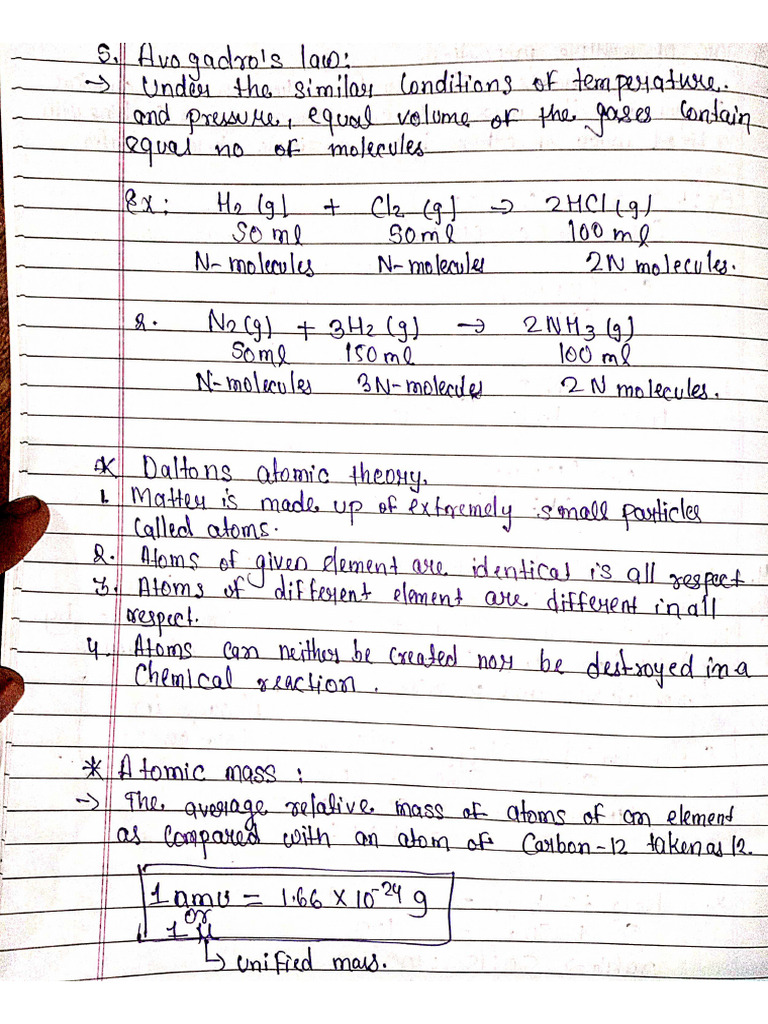 5. Avogadro's law:
→ Under the similar conditions of temperature.
and pressure, equal volume of the gases contain
equal no of molecules
Ex: H2 (g) + Cl2 (g) → 2HCl (g)
50 ml 50ml 100 ml
N- molecules N- molecules 2N molecules.
2. N2 (g) + 3H2 (g) → 2NH3 (g)
50ml 150 ml 100 ml
N-molecules 3N-molecules 2N molecules.
* Daltons atomic theory.
1. Matter is made up of extremely small particles
called atoms.
2. Atoms of given element are identical is all respect
3. Atoms of different element are different in all
respect.
4. Atoms can neither be created nor be destroyed in a
chemical reaction.
* Atomic mass :
→ The average relative mass of atoms of an element
as compared with an atom of Carbon-12 taken as 12.
1 amu = 1.66 × 10-24 g
or
1 μ
↳ unified mass.